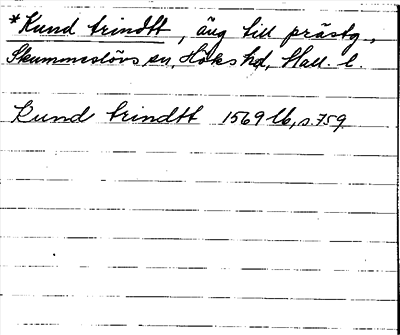 *Kund trindtt, äng till prästg.,
Skummeslövs sn, Höks hd, Hall. l.
Kund trindtt 1569 lb, s. 759